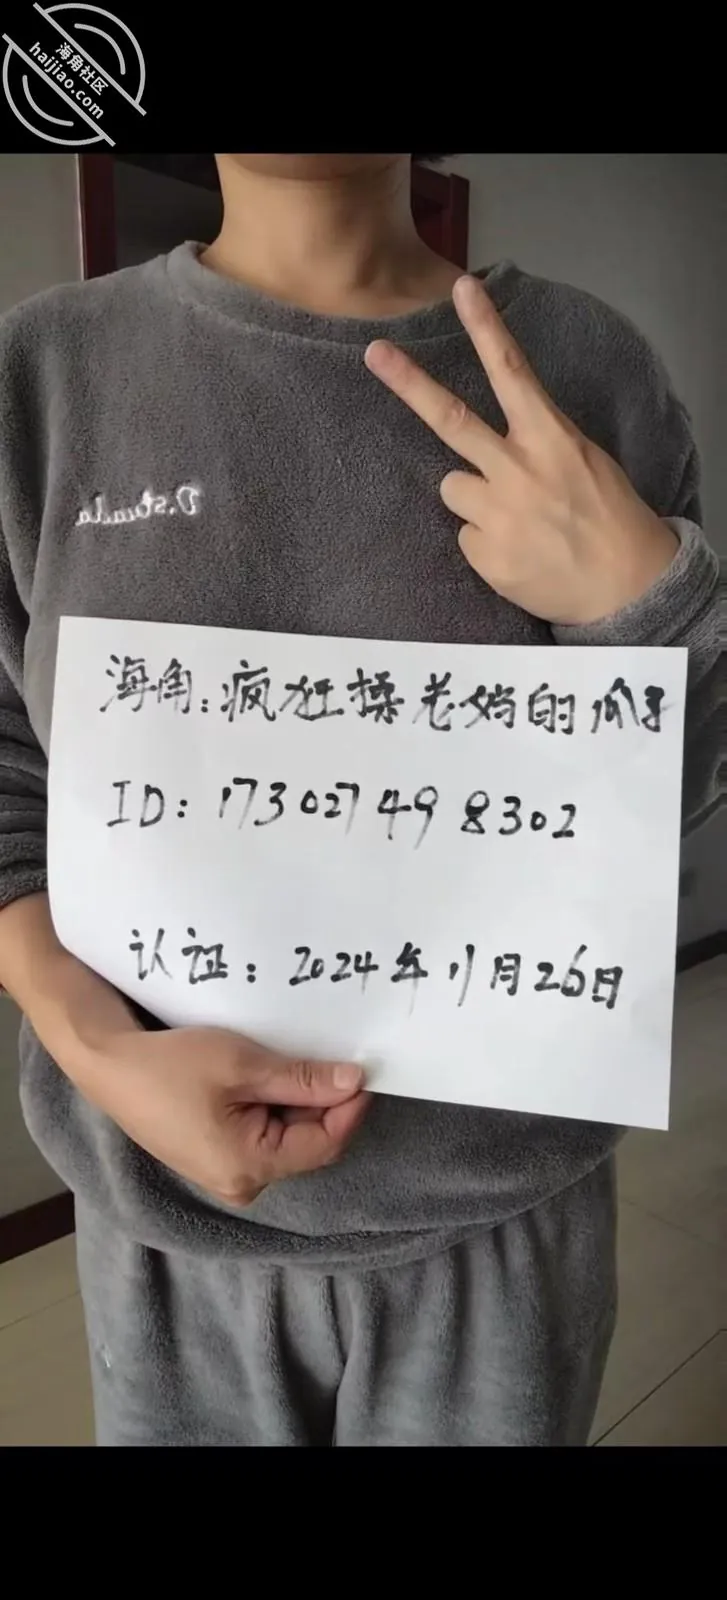 海角社区
haijiao.com
D.studio
海角：疯狂揉老妈的瓜子
ID：173027498302
认证：2024年11月26日